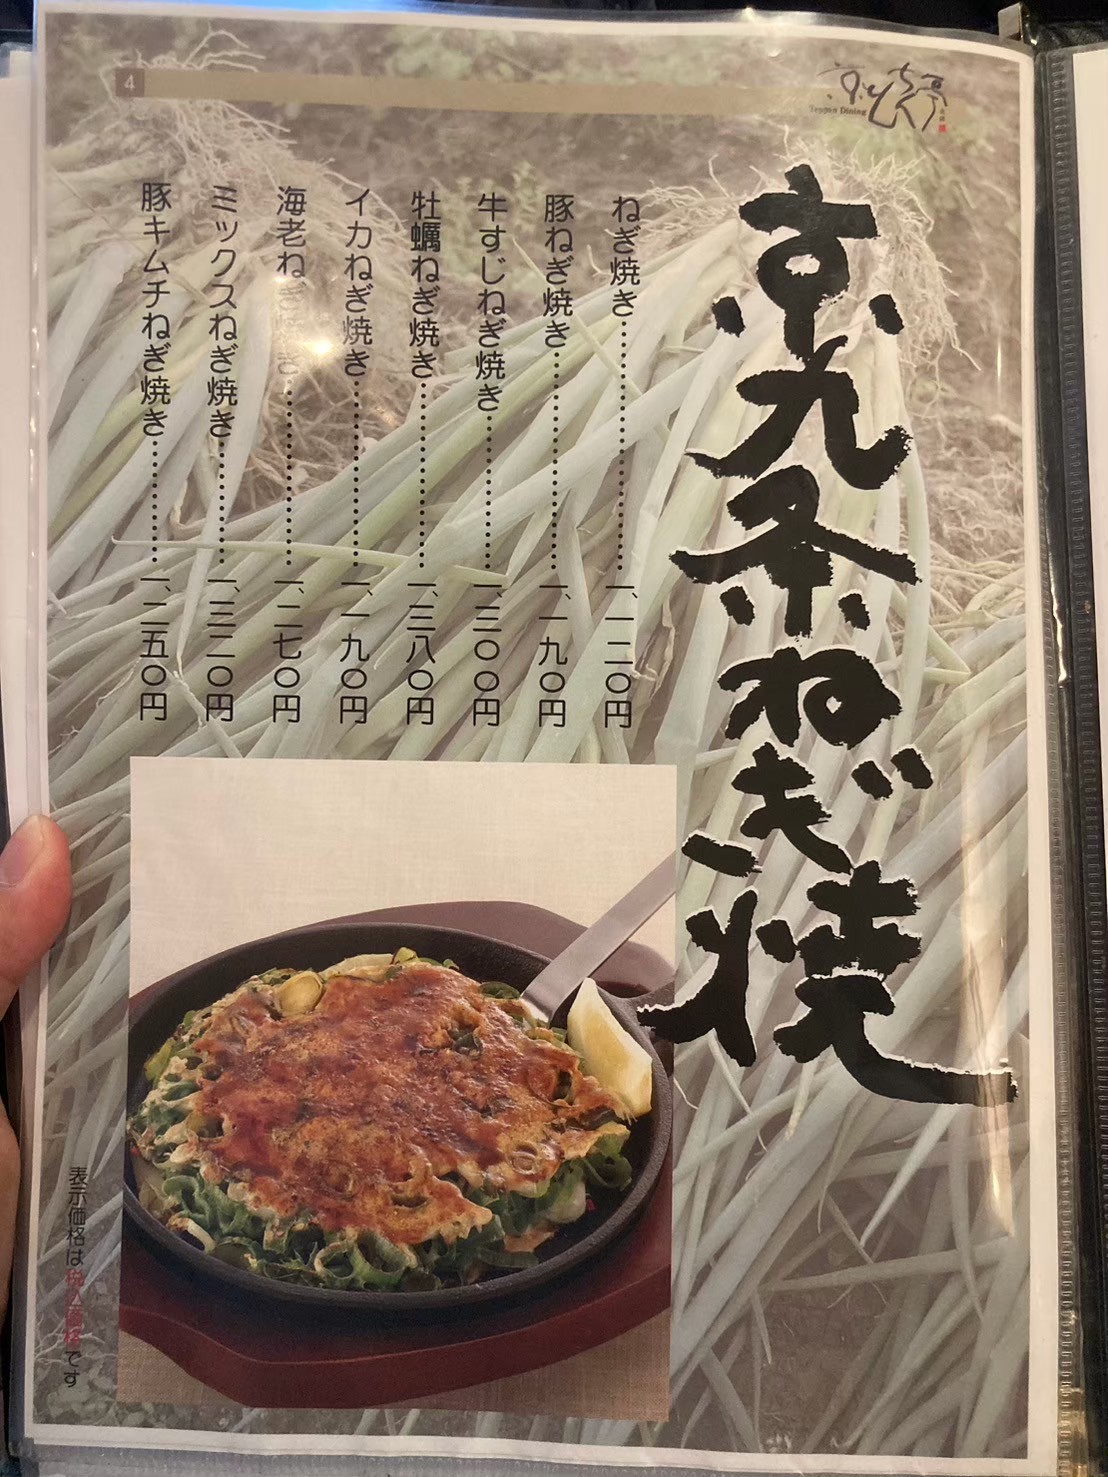 4
Teppan Dining
京九条ねぎ焼
ねぎ焼き…………………一、一二〇円
豚ねぎ焼き………………一、一九〇円
牛すじねぎ焼き…………一、三〇〇円
牡蠣ねぎ焼き……………一、三八〇円
イカねぎ焼き……………一、一九〇円
海老ねぎ焼き……………一、二七〇円
ミックスねぎ焼き………一、三二〇円
豚キムチねぎ焼き………一、二五〇円
表示価格は税込価格です